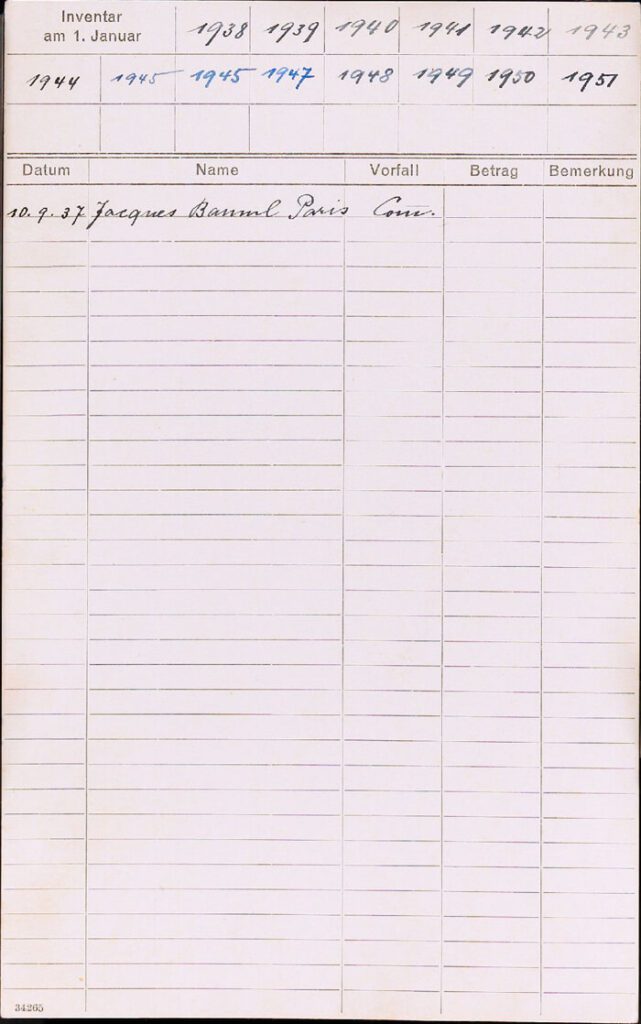 Inventar
am 1. Januar 1938 1939 1940 1941 1942 1943
1944 1945 1945 1947 1948 1949 1950 1951
Datum Name Vorfall Betrag Bemerkung
10. 9. 37 Jacques Paris Com.
34265